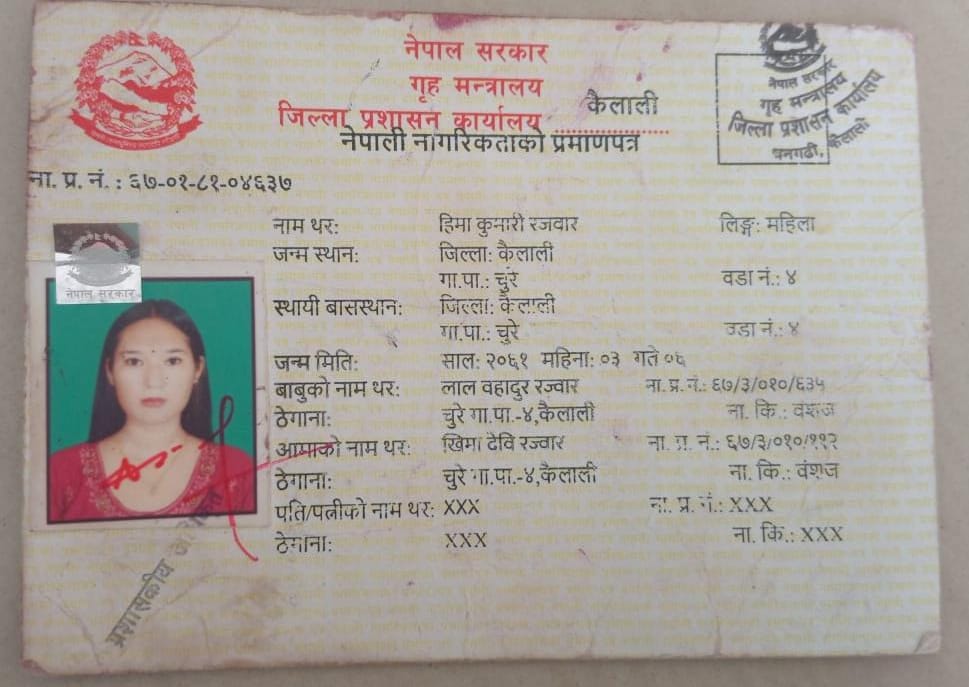 नेपाल सरकार
गृह मन्त्रालय
जिल्ला प्रशासन कार्यालय कैलाली
नेपाली नागरिकताको प्रमाणपत्र
नेपाल सरकार
गृह मन्त्रालय
जिल्ला प्रशासन कार्यालय
धनगढी, कैलाली
ना. प्र. नं. : ६७-०१-८१-०४६३७
नेपाल सरकार
नाम थर: हिमा कुमारी रजवार लिङ्ग: महिला
जन्म स्थान: जिल्ला: कैलाली
गा.पा.: चुरे वडा नं.: ४
स्थायी बासस्थान: जिल्ला: कैलाली
गा.पा.: चुरे वडा नं.: ४
जन्म मिति: साल: २०६१ महिना: ०३ गते ०६
बाबुको नाम थर: लाल वहादुर रज्वार ना.प्र.नं.: ६७/३/०१०/६३५
ठेगाना: चुरे गा.पा.-४,कैलाली ना. कि.: वंशज
आमाको नाम थर: खिमा देवि रज्वार ना. प्र. नं.: ६७/३/०१०/११२
ठेगाना: चुरे गा.पा.-४,कैलाली ना. कि.: वंशज
पति/पत्नीको नाम थर: XXX ना. प्र. नं.: XXX
ठेगाना: XXX ना. कि.: XXX
प्रशासकीय